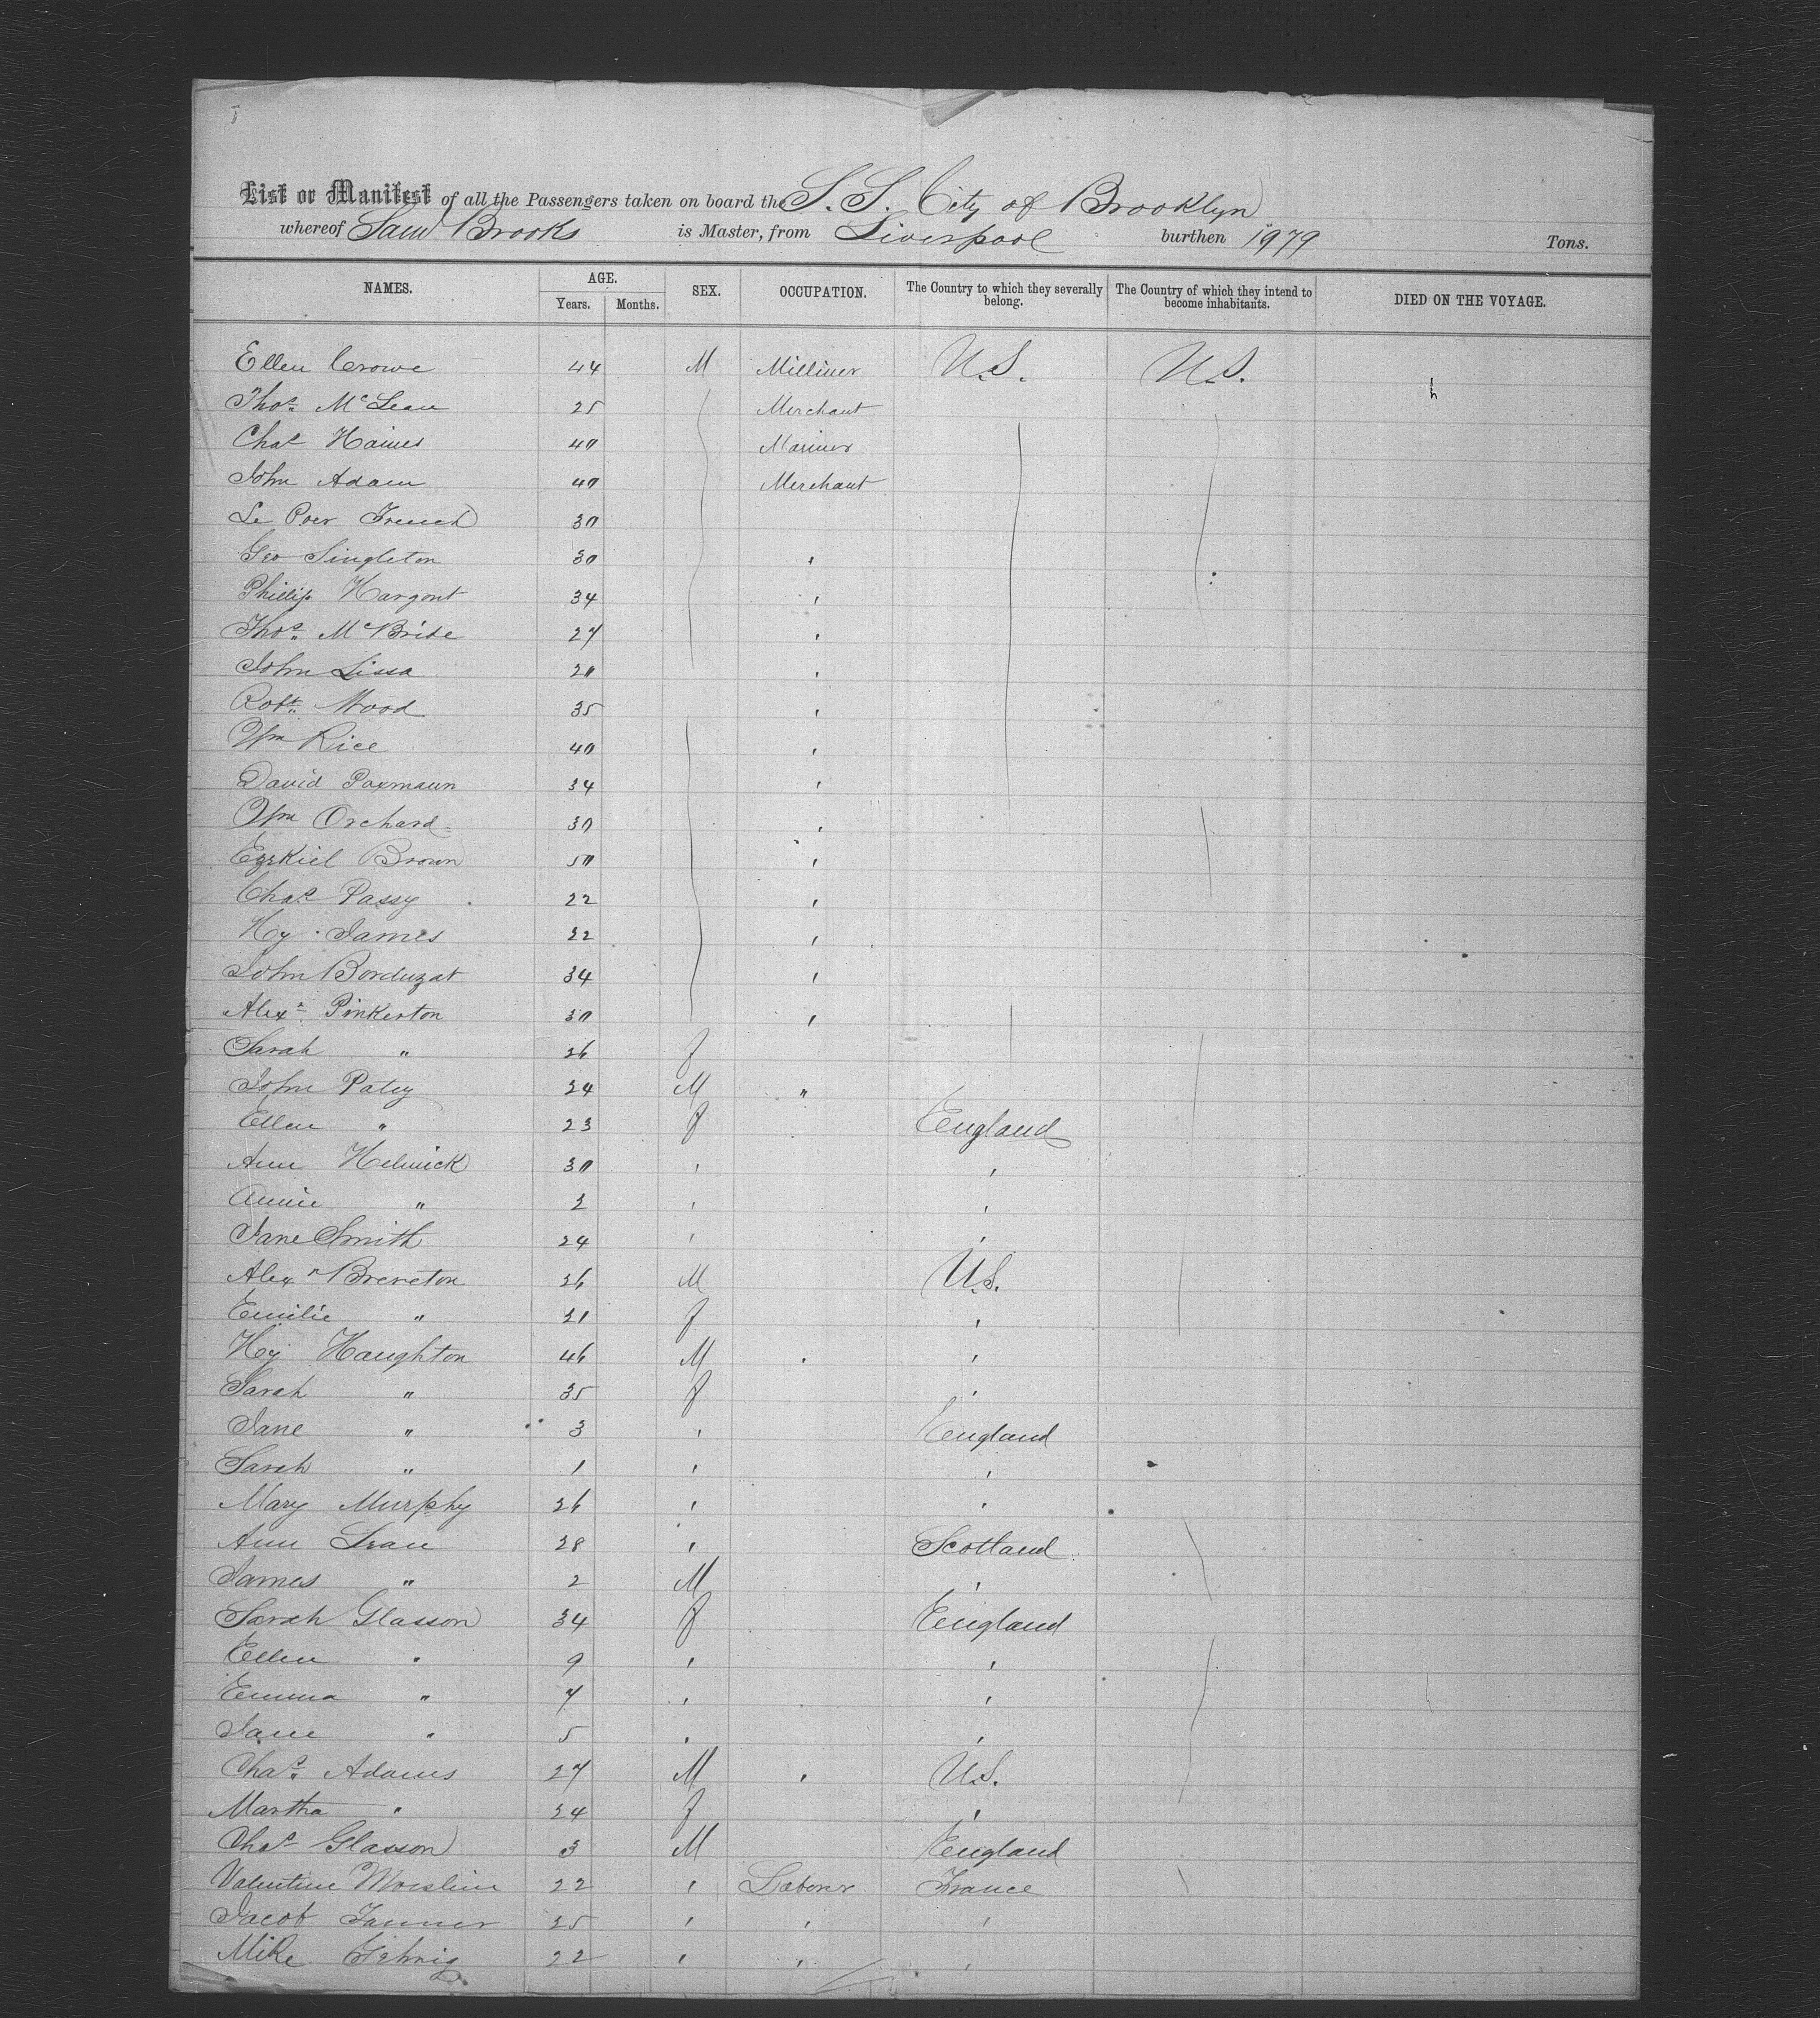 List or Manifest of all the Passengers taken on board the S. S. City of Brooklyn
whereof Saml Brooks is Master, from Liverpool burthen 1979 Tons.
NAMES. AGE. SEX. OCCUPATION. The Country to which they severally belong. The Country of which they intend to become inhabitants. DIED ON THE VOYAGE.
Years. Months.
Ellen Crowe 44 M Milliner U.S. U.S.
Thos. McLean 25 Merchant
Chas Haines 40 Mariner
John Adam 40 Merchant
Le Poer French 30
Geo Singleton 30 '
Phillip Hargont 34 '
Thos. McBride 27 '
John Lissa 20 '
Robt. Wood 35 '
Wm Rice 40 '
David Paxmann 34 '
Wm Orchard 30 '
Ezekiel Brown 50 '
Chas Passy 22 '
Hy James 32 '
John Borduzat 34 '
Alexr Pinkerton 30 '
Sarah " 26 f
John Patey 24 M "
Ellen " 23 f England
Ann Helwick 30 ' '
Annie " 2 ' '
Jane Smith 24 ' '
Alexr Brereton 26 M U.S.
Emilie " 21 f '
Hy Haughton 46 M ' '
Sarah " 35 f '
Jane " 3 ' England
Sarah " 1 ' '
Mary Murphy 26 ' '
Ann Lean 28 ' Scotland
James " 2 M '
Sarah Glasson 34 f England
Ellen " 9 ' '
Emma " 7 ' '
Jane " 5 ' '
Chas. Adams 27 M ' U.S.
Martha " 24 f '
Chas Glasson 3 M England
Valentine 22 ' Laborer France
Jacob Tanner 25 ' ' '
Mike Gehrig 22 ' ' '